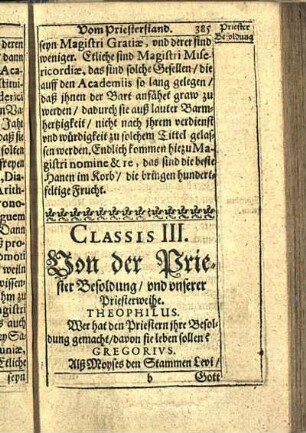 Vom Priesterstand. 385
Priester
Besoldung
seyn Magistri Gratiæ, vnd derer sind
weniger. Etliche sind Magistri Mise-
ricordiæ, das sind solche Gesellen / die
auff den Academiis so lang gelegen /
daß jhnen der Bart anfähet graw zu
werden / dadurch sie auß lauter Barm-
hertzigkeit / nicht nach jhrem verdienst
vnd würdigkeit zu solchem Tittel gelas-
sen werden, Endlich kommen hiezu Ma-
gistri nomine & re, das sind die beste
Hanen im Korb / die bringen hundert-
feltige Frucht.
CLASSIS III.
Von der Prie-
ster Besoldung / vnd vnserer
Priesterweihe.
THEOPHILUS.
Wer hat den Priestern jhre Besol-
dung gemacht / davon sie leben sollen?
GREGORIVS.
Alß Moyses den Stammen Levi /
b
Gott
deren
dann
Aca-
derici
Jahr
daß
sollen
freyen
Arith-
rono-
guem
Dann
pro-
moti
wissen
hm zu
Magi-
auch
Etliche
seyn